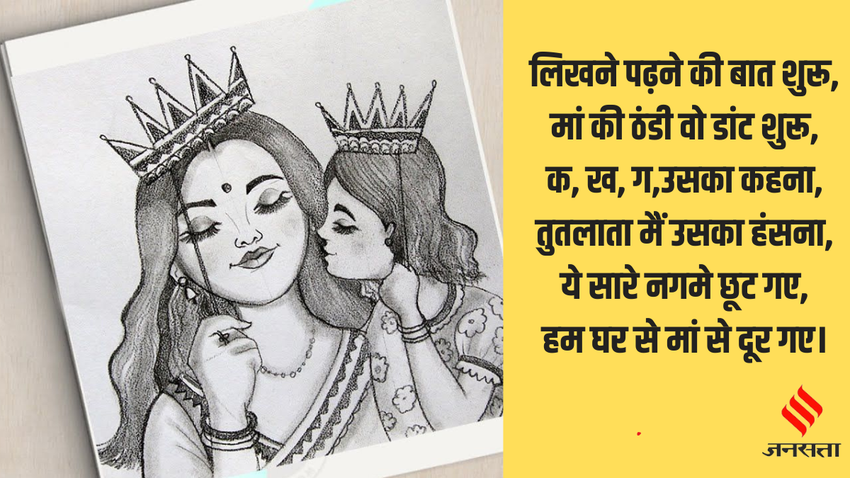 लिखने पढ़ने की बात शुरू,
मां की ठंडी वो डांट शुरू,
क, ख, ग,उसका कहना,
तुतलाता मैं उसका हंसना,
ये सारे नगमे छूट गए,
हम घर से मां से दूर गए।
जनसत्ता